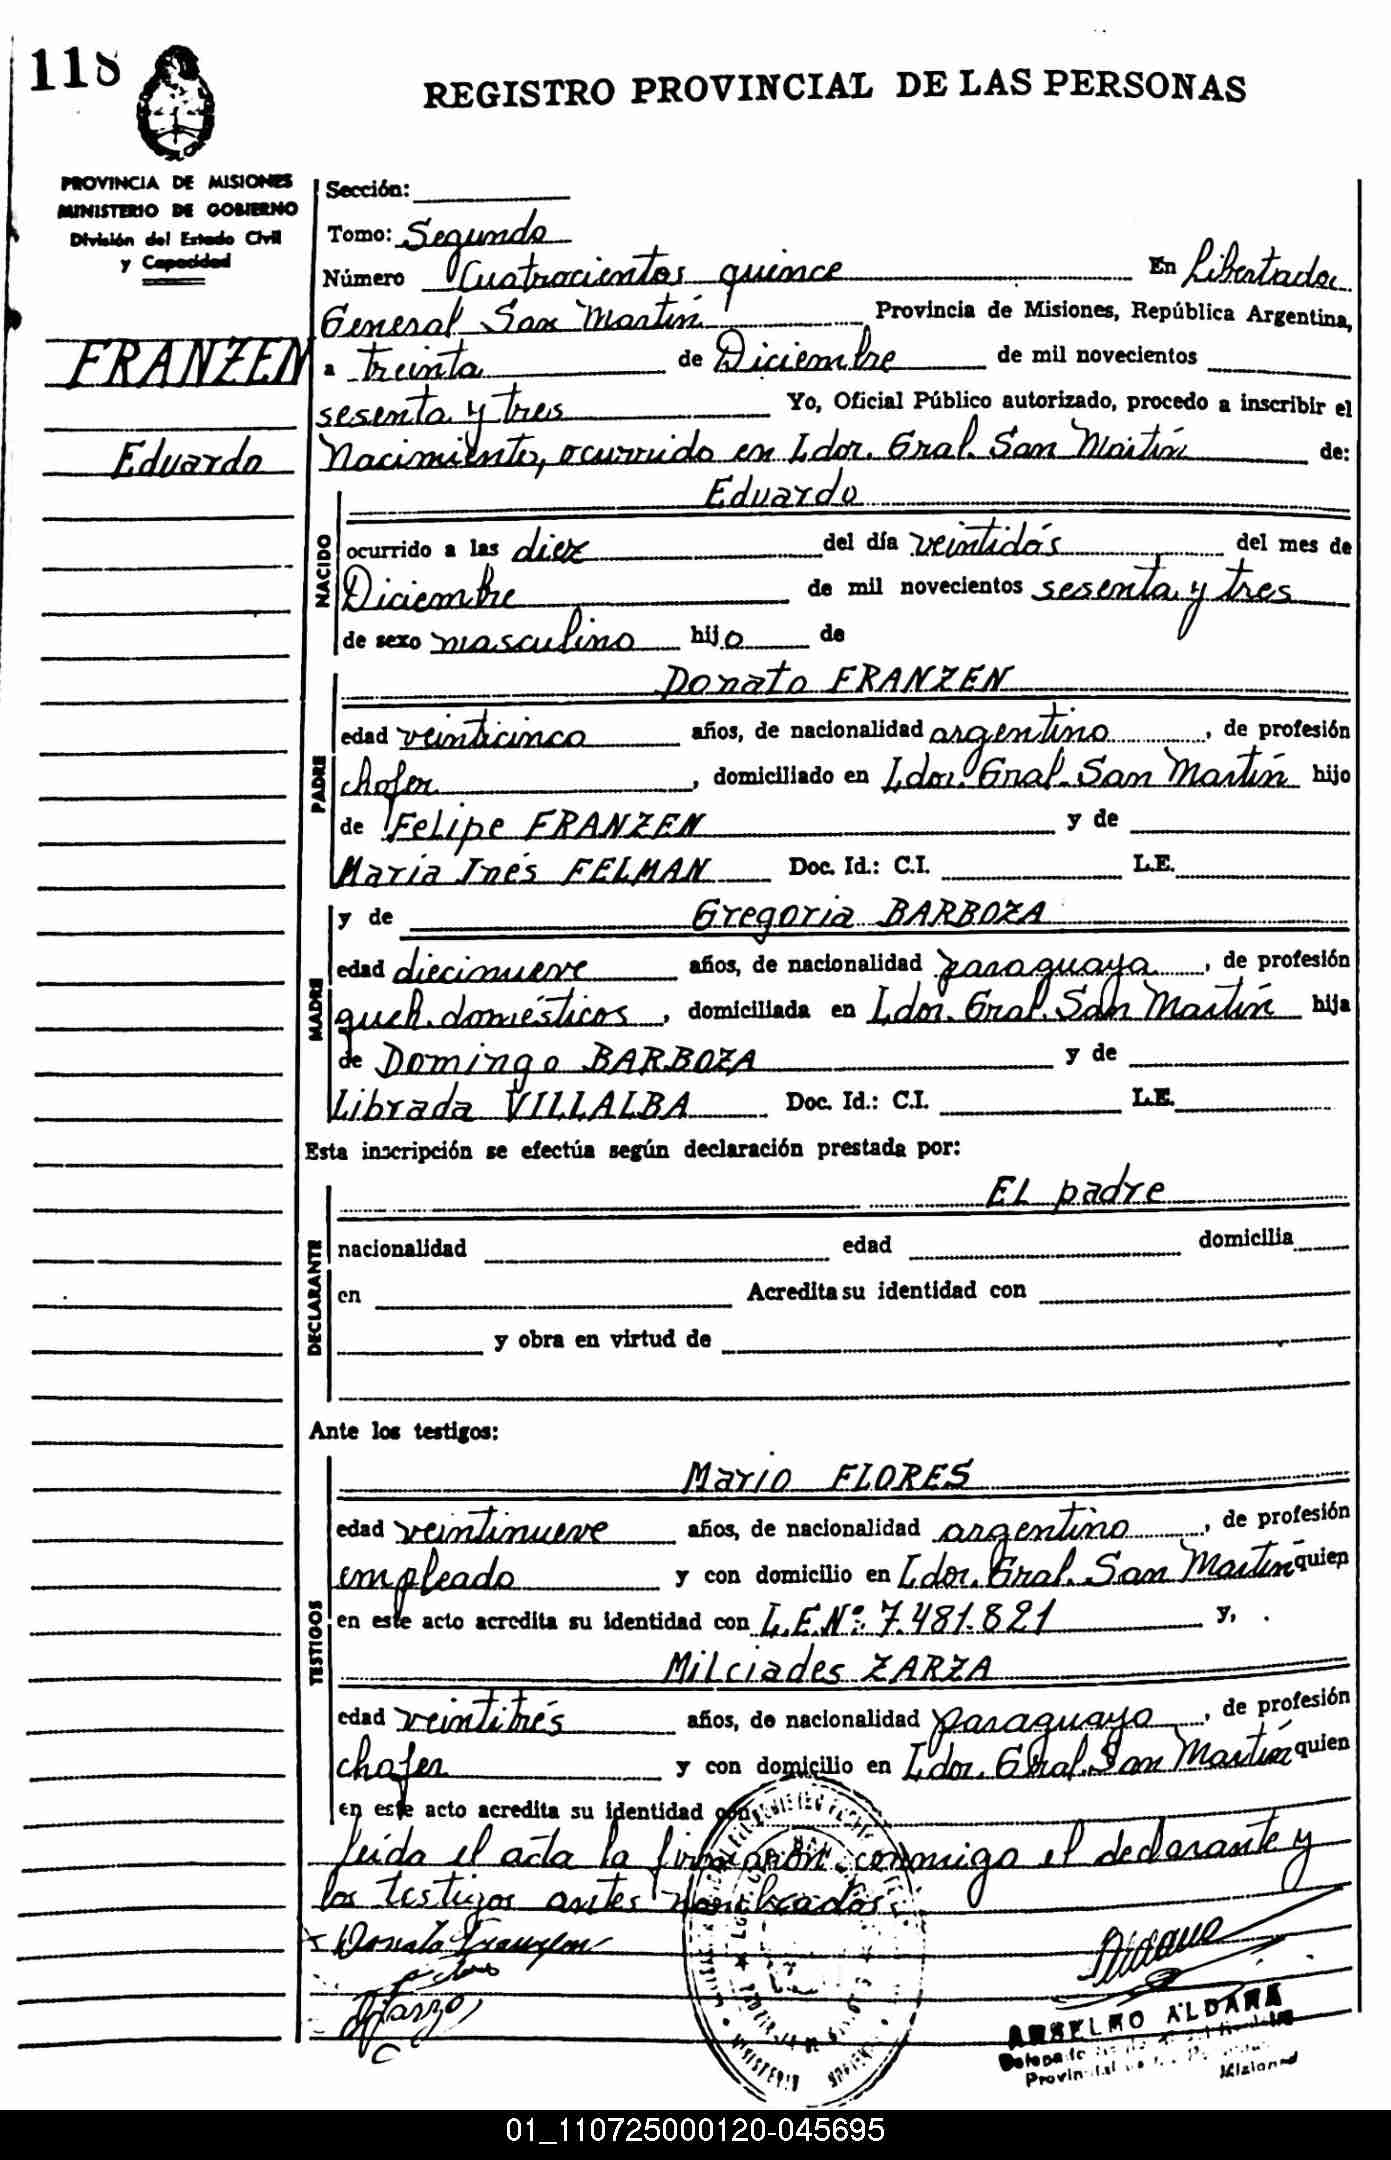 118
REGISTRO PROVINCIAL DE LAS PERSONAS
PROVINCIA DE MISIONES
MINISTERIO DE GOBIERNO
División del Estado Civil
y Capacidad
FRANZEN
Eduardo
Sección:
Tomo: Segundo
Número Cuatrocientos quince En Libertador
General San Martín Provincia de Misiones, República Argentina,
a treinta de Diciembre de mil novecientos
sesenta y tres Yo, Oficial Público autorizado, procedo a inscribir el
Nacimiento, ocurrido en Ldor. Gral. San Martín de:
NACIDO
Eduardo
ocurrido a las diez del día veintidós del mes de
Diciembre de mil novecientos sesenta y tres
de sexo masculino hijo de
PADRE
Donato FRANZEN
edad veinticinco años, de nacionalidad argentino, de profesión
chofer, domiciliado en Ldor. Gral. San Martín hijo
de Felipe FRANZEN y de
María Inés FELMAN Doc. Id.: C.I. L.E.
MADRE
y de Gregoria BARBOZA
edad diecinueve años, de nacionalidad paraguaya, de profesión
queh. domésticos, domiciliada en Ldor. Gral. San Martín hija
de Domingo BARBOZA y de
Librada VILLALBA Doc. Id.: C.I. L.E.
Esta inscripción se efectúa según declaración prestada por:
DECLARANTE
EL padre
nacionalidad edad domicilia
en Acredita su identidad con
y obra en virtud de
Ante los testigos:
TESTIGOS
Mario FLORES
edad veintinueve años, de nacionalidad argentino, de profesión
empleado y con domicilio en Ldor. Gral. San Martín quien
en este acto acredita su identidad con L.E.Nº: 7.481.821 y,
Milciades ZARZA
edad veintitrés años, de nacionalidad paraguayo, de profesión
chofer y con domicilio en Ldor. Gral. San Martín quien
en este acto acredita su identidad con
leída el acta la firmaron conmigo el declarante y
los testigos antes nombrados.
Donato Franzen
ANSELMO ALDANA
01_110725000120-045695